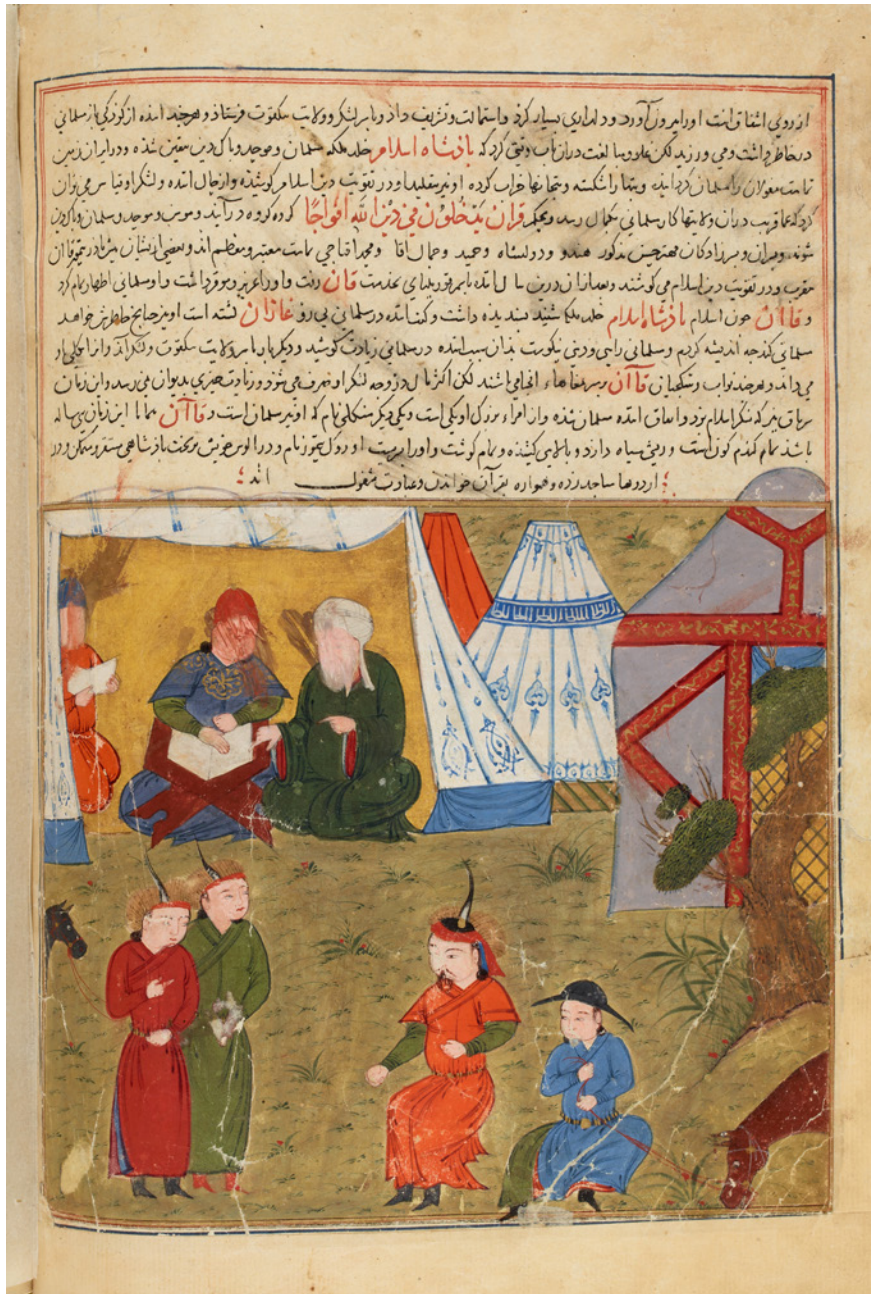 از روی اشفاق است او را بیرون آورد و دلداری بسیار کرد و استمالت و تشریف داد و با سر لشکر و ولایت تنکقوت فرستاد و هرچند اننده از کودکی باز مسلمانی
در خاطر داشت و می ورزید لکن غلو و مبالغت در آن باب وقتی کرد که پادشاه اسلام خلد ملکه مسلمان و موحد و پاک دین شده و در ایران زمین
تمامت مغولان را مسلمان گردانیده و بتها را شکسته و بتخانها خراب کرده او نیز تقلید او در تقویت دین اسلام کوشیده و از حال اننده و لشکر او قیاس می توان
کرد که عما قریب در آن ولایتها کار مسلمانی بکمال رسد و بحکم قرآن یدخلون فی دین الله افواجا گروه گروه در آیند و مومن و موحد و مسلمان و پاک دین
شوند و پسران و پسرزادگان مهتر حسن مذکور هندو و دولتشاه و حمید و جمال اقا و محمد اقتاجی تمامت معتبر و معظم اند و بعضی از ایشان پیش مادر تیمور قاآن
مقرب و در تقویت دین اسلام می کوشند و بعد از آن درین سال اننده باسم قوریلتای بخدمت قاآن رفت و او را عزیز و موقر داشت و او مسلمانی اظهار تمام کرد
و قاآن چون اسلام پادشاه اسلام خلد ملکه شنید پسندیده داشت و گفت اننده در مسلمانی پی رو غازان گشته است او نیز چنانچ خاطرش خواهد
مسلمانی کند چه اندیشه کردیم و مسلمانی راهی و دینی نیکوست بدان سبب اننده در مسلمانی زیادت کوشید و دیگر بار با سر ولایت تنکقوت و لشکر آمد و از آن
می داند و هر چند نواب و بتکچیان قاآن بر سر تمغاها آنجا می باشند لکن اکثر مال در وجه لشکر او صرف می شود و زیادت چیزی بدیوان نمی رسد و این زمان
سرتاق نیز که منکر اسلام بود و ایغاق اننده مسلمان شده و از امراء بزرگ او یکی است و یکی دیگر منکلی نام که او نیز مسلمان است و قاآن همانا این زمان سی ساله
باشد تمام گندم گون است و ریش سیاه دارد و بالایی کشیده و تمام گوشت و او را پسریست اوروک تیمور نام و در الوس خویش بر تخت پادشاهی مستقر و متمکن و در
اردوها مساجد زده و همواره بقرآن خواندن و عبادت مشغول اند